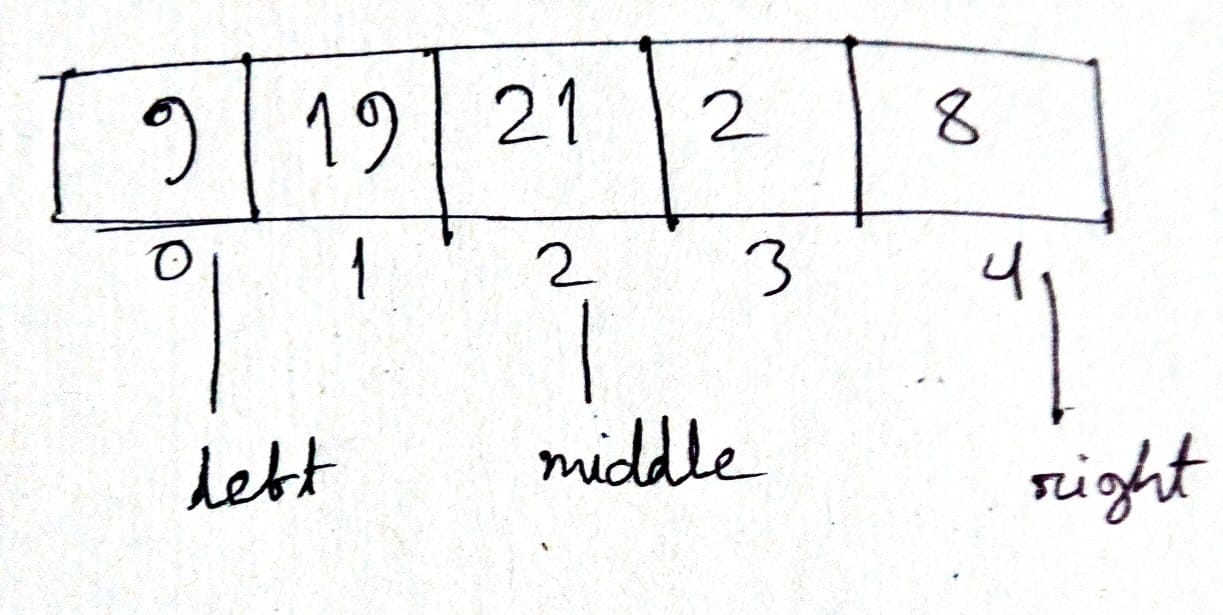 9 19 21 2 8
0 1 2 3 4
left middle right